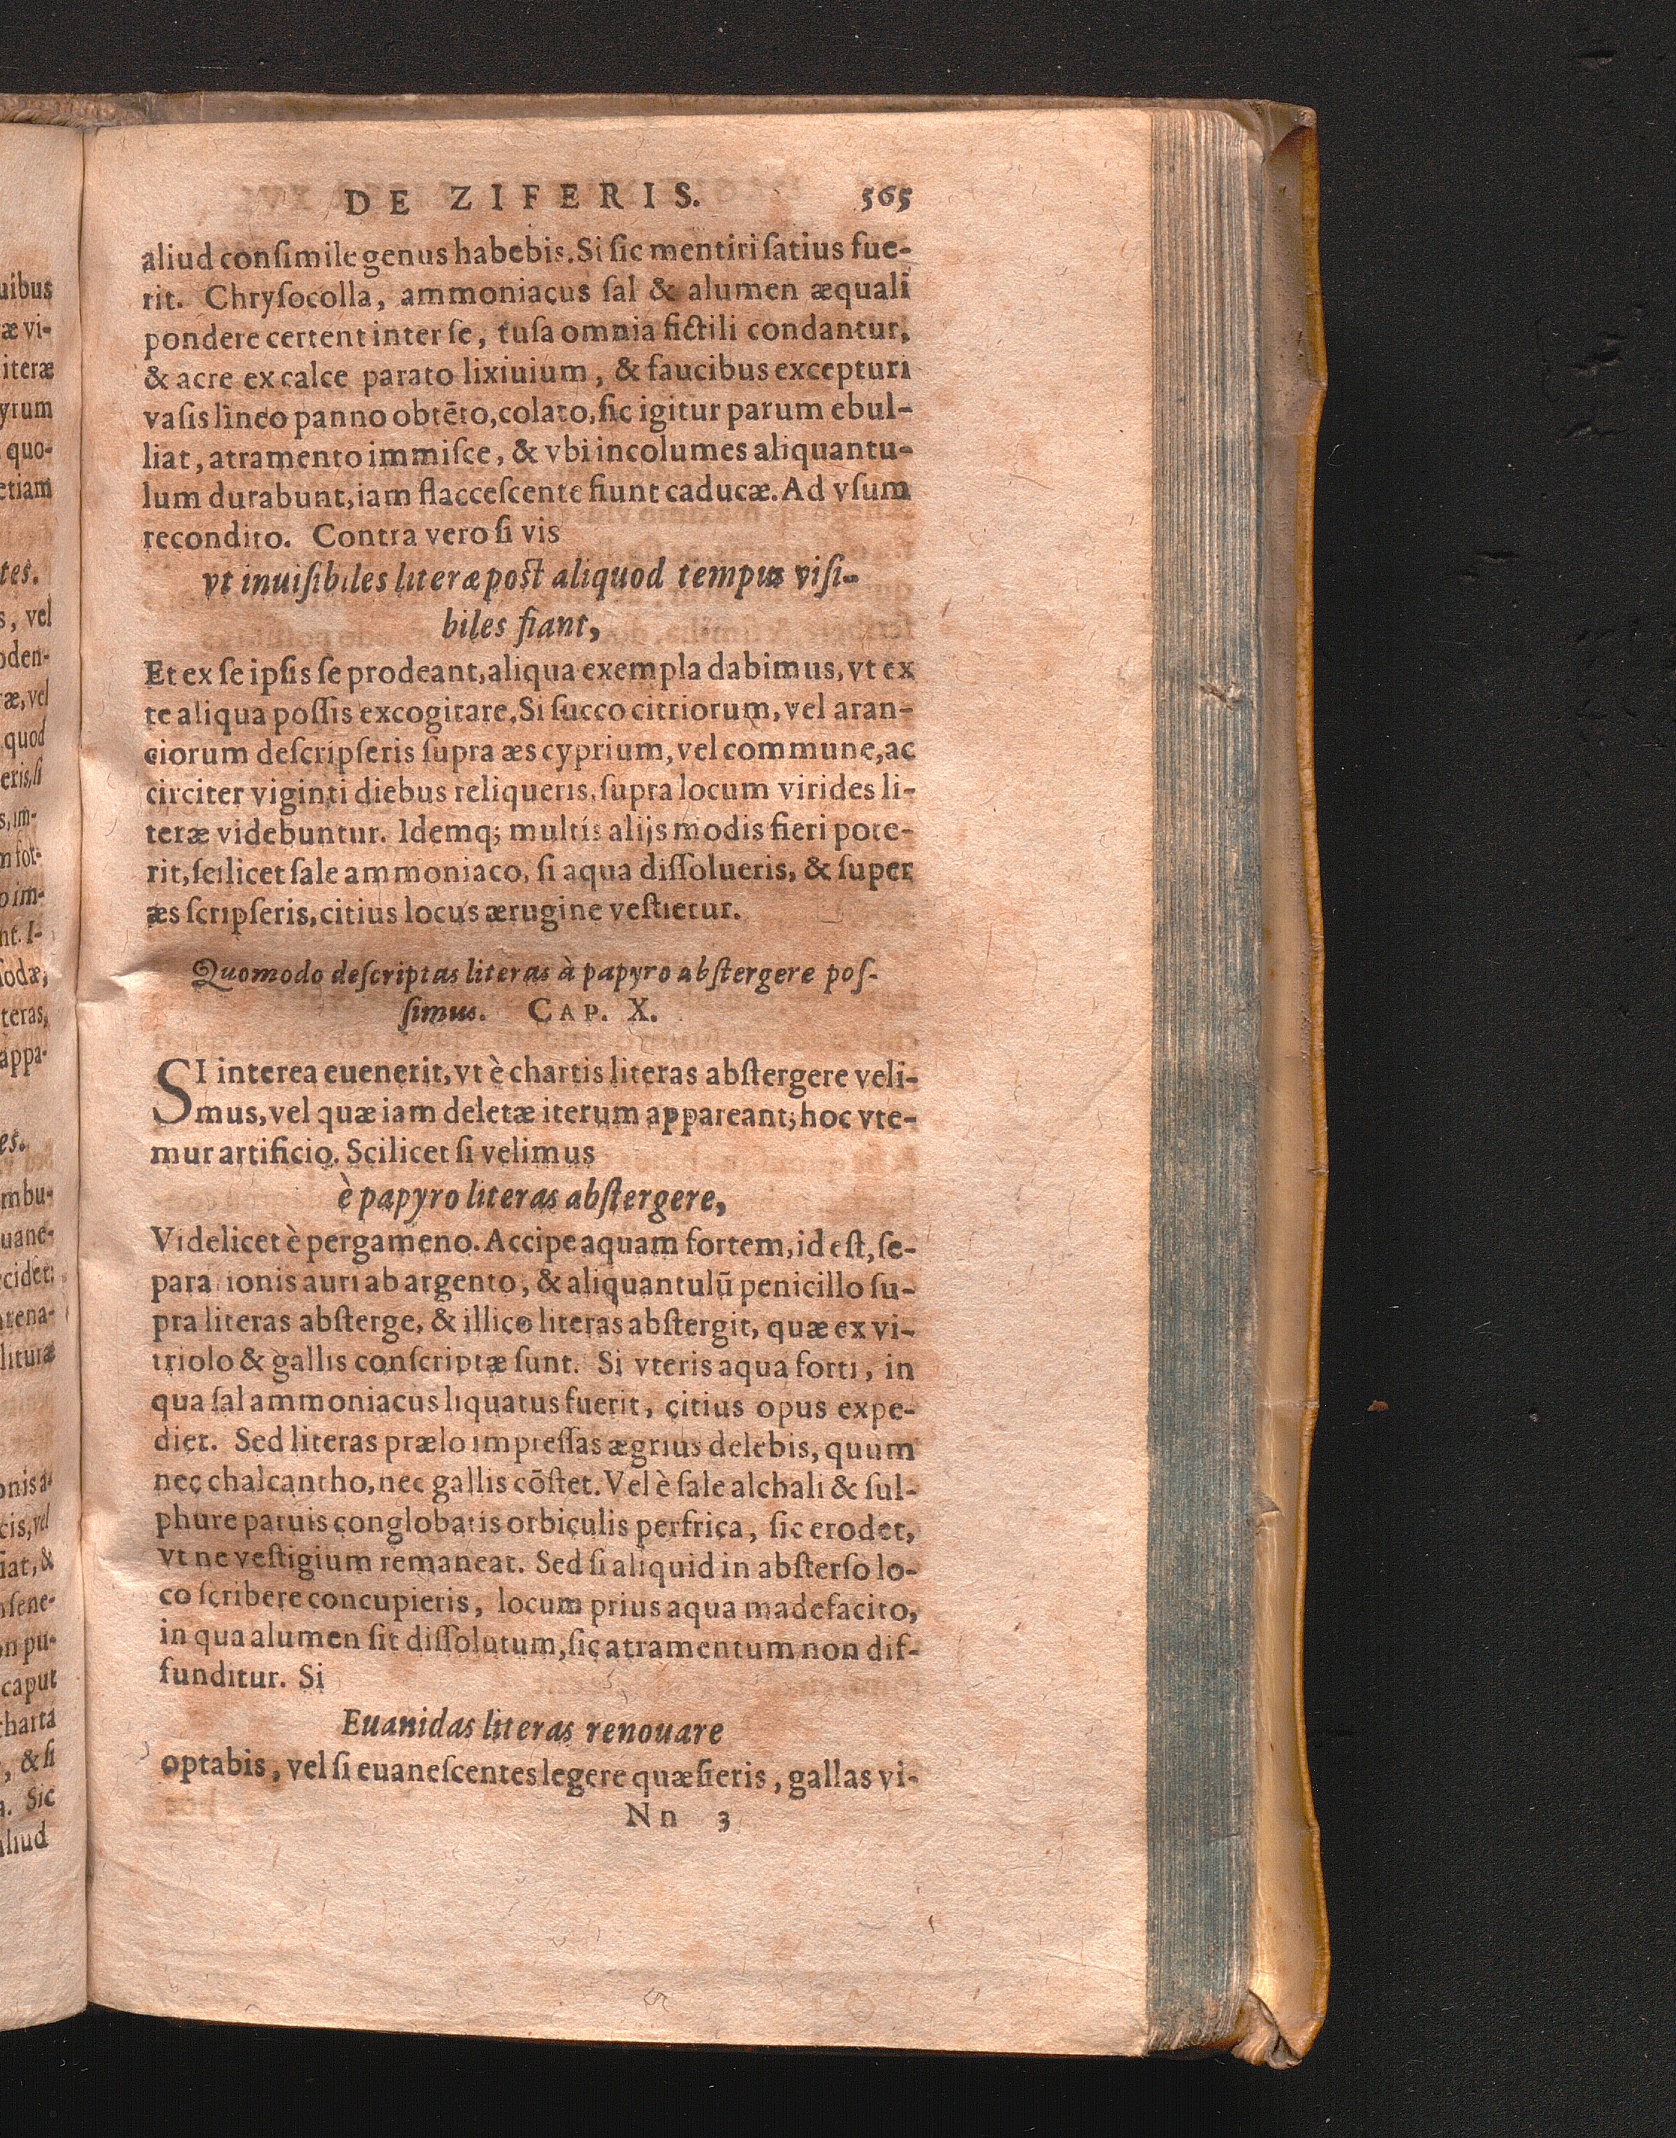 DE ZIFERIS. 565
aliud conſimile genus habebis. Si ſic mentiri ſatius fue-
rit. Chryſocolla, ammoniacus ſal & alumen æquali
pondere certent inter ſe, tuſa omnia fictili condantur,
& acre ex calce parato lixiuium, & faucibus excepturi
vaſis lineo panno obtēto, colato, ſic igitur parum ebul-
liat, atramento immiſce, & vbi incolumes aliquantu-
lum durabunt, iam flacceſcente fiunt caducæ. Ad vſum
recondito. Contra vero ſi vis
vt inuiſibiles literæ post aliquod tempus viſi-
biles fiant,
Et ex ſe ipſis ſe prodeant, aliqua exempla dabimus, vt ex
te aliqua poſſis excogitare. Si ſucco citriorum, vel aran-
ciorum deſcripſeris ſupra æs cyprium, vel commune, ac
circiter viginti diebus reliqueris, ſupra locum virides li-
teræ videbuntur. Idemq; multis alijs modis fieri pote-
rit, ſcilicet ſale ammoniaco, ſi aqua diſſolueris, & ſuper
æs ſcripſeris, citius locus ærugine veſtietur.
Quomodo deſcriptas literas à papyro abſtergere poſ-
ſimus. CAP. X.
SI interea euenerit, vt è chartis literas abſtergere veli-
mus, vel quæ iam deletæ iterum appareant; hoc vte-
mur artificio. Scilicet ſi velimus
è papyro literas abſtergere,
Videlicet è pergameno. Accipe aquam fortem, id eſt, ſe-
para ionis auri ab argento, & aliquantulū penicillo ſu-
pra literas abſterge, & illico literas abſtergit, quæ ex vi-
triolo & gallis conſcriptæ ſunt. Si vteris aqua forti, in
qua ſal ammoniacus liquatus fuerit, citius opus expe-
diet. Sed literas prælo impreſſas ægrius delebis, quum
nec chalcantho, nec gallis cōſtet. Vel è ſale alchali & ſul-
phure paruis conglobatis orbiculis perfrica, ſic erodet,
vt ne veſtigium remaneat. Sed ſi aliquid in abſterſo lo-
co ſcribere concupieris, locum prius aqua madefacito,
in qua alumen ſit diſſolutum, ſic atramentum non dif-
funditur. Si
Euanidas literas renouare
optabis, vel ſi euaneſcentes legere quæſieris, gallas vi-
Nn 3